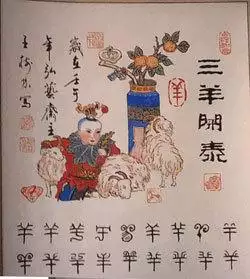 三羊開泰
羊
歲在壬午
年弘藝齋主
王樹水寫
羊 羊 羊 羊 羊 羊 羊 羊
羊 羊 羊 羊 羊 羊 羊 羊